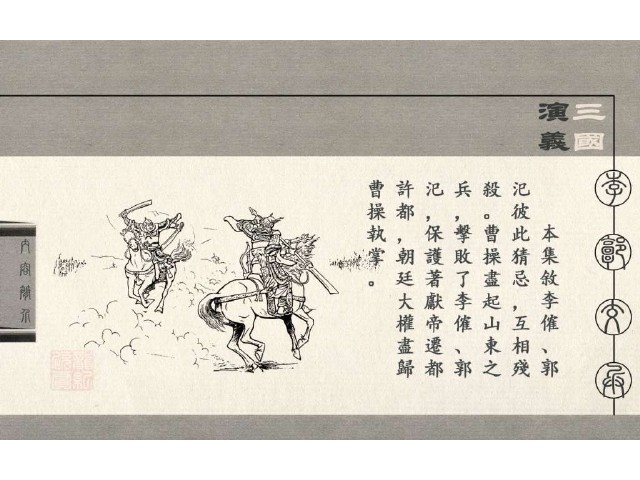 三國
演義
李郭交兵
本集敘李傕、郭
汜彼此猜忌，互相殘
殺。曹操盡起山東之
兵，擊敗了李傕、郭
汜，保護著獻帝遷都
許都，朝廷大權盡歸
曹操執掌。
內容簡介